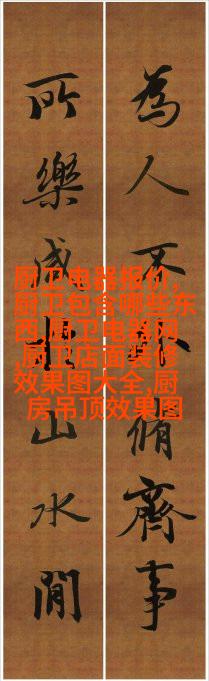 為人不脩齊事
所樂山水間
厨卫电器报价,
厨卫包含哪些东
西,厨卫电器网
,厨卫店面装修
效果图大全,厨
房吊顶效果图